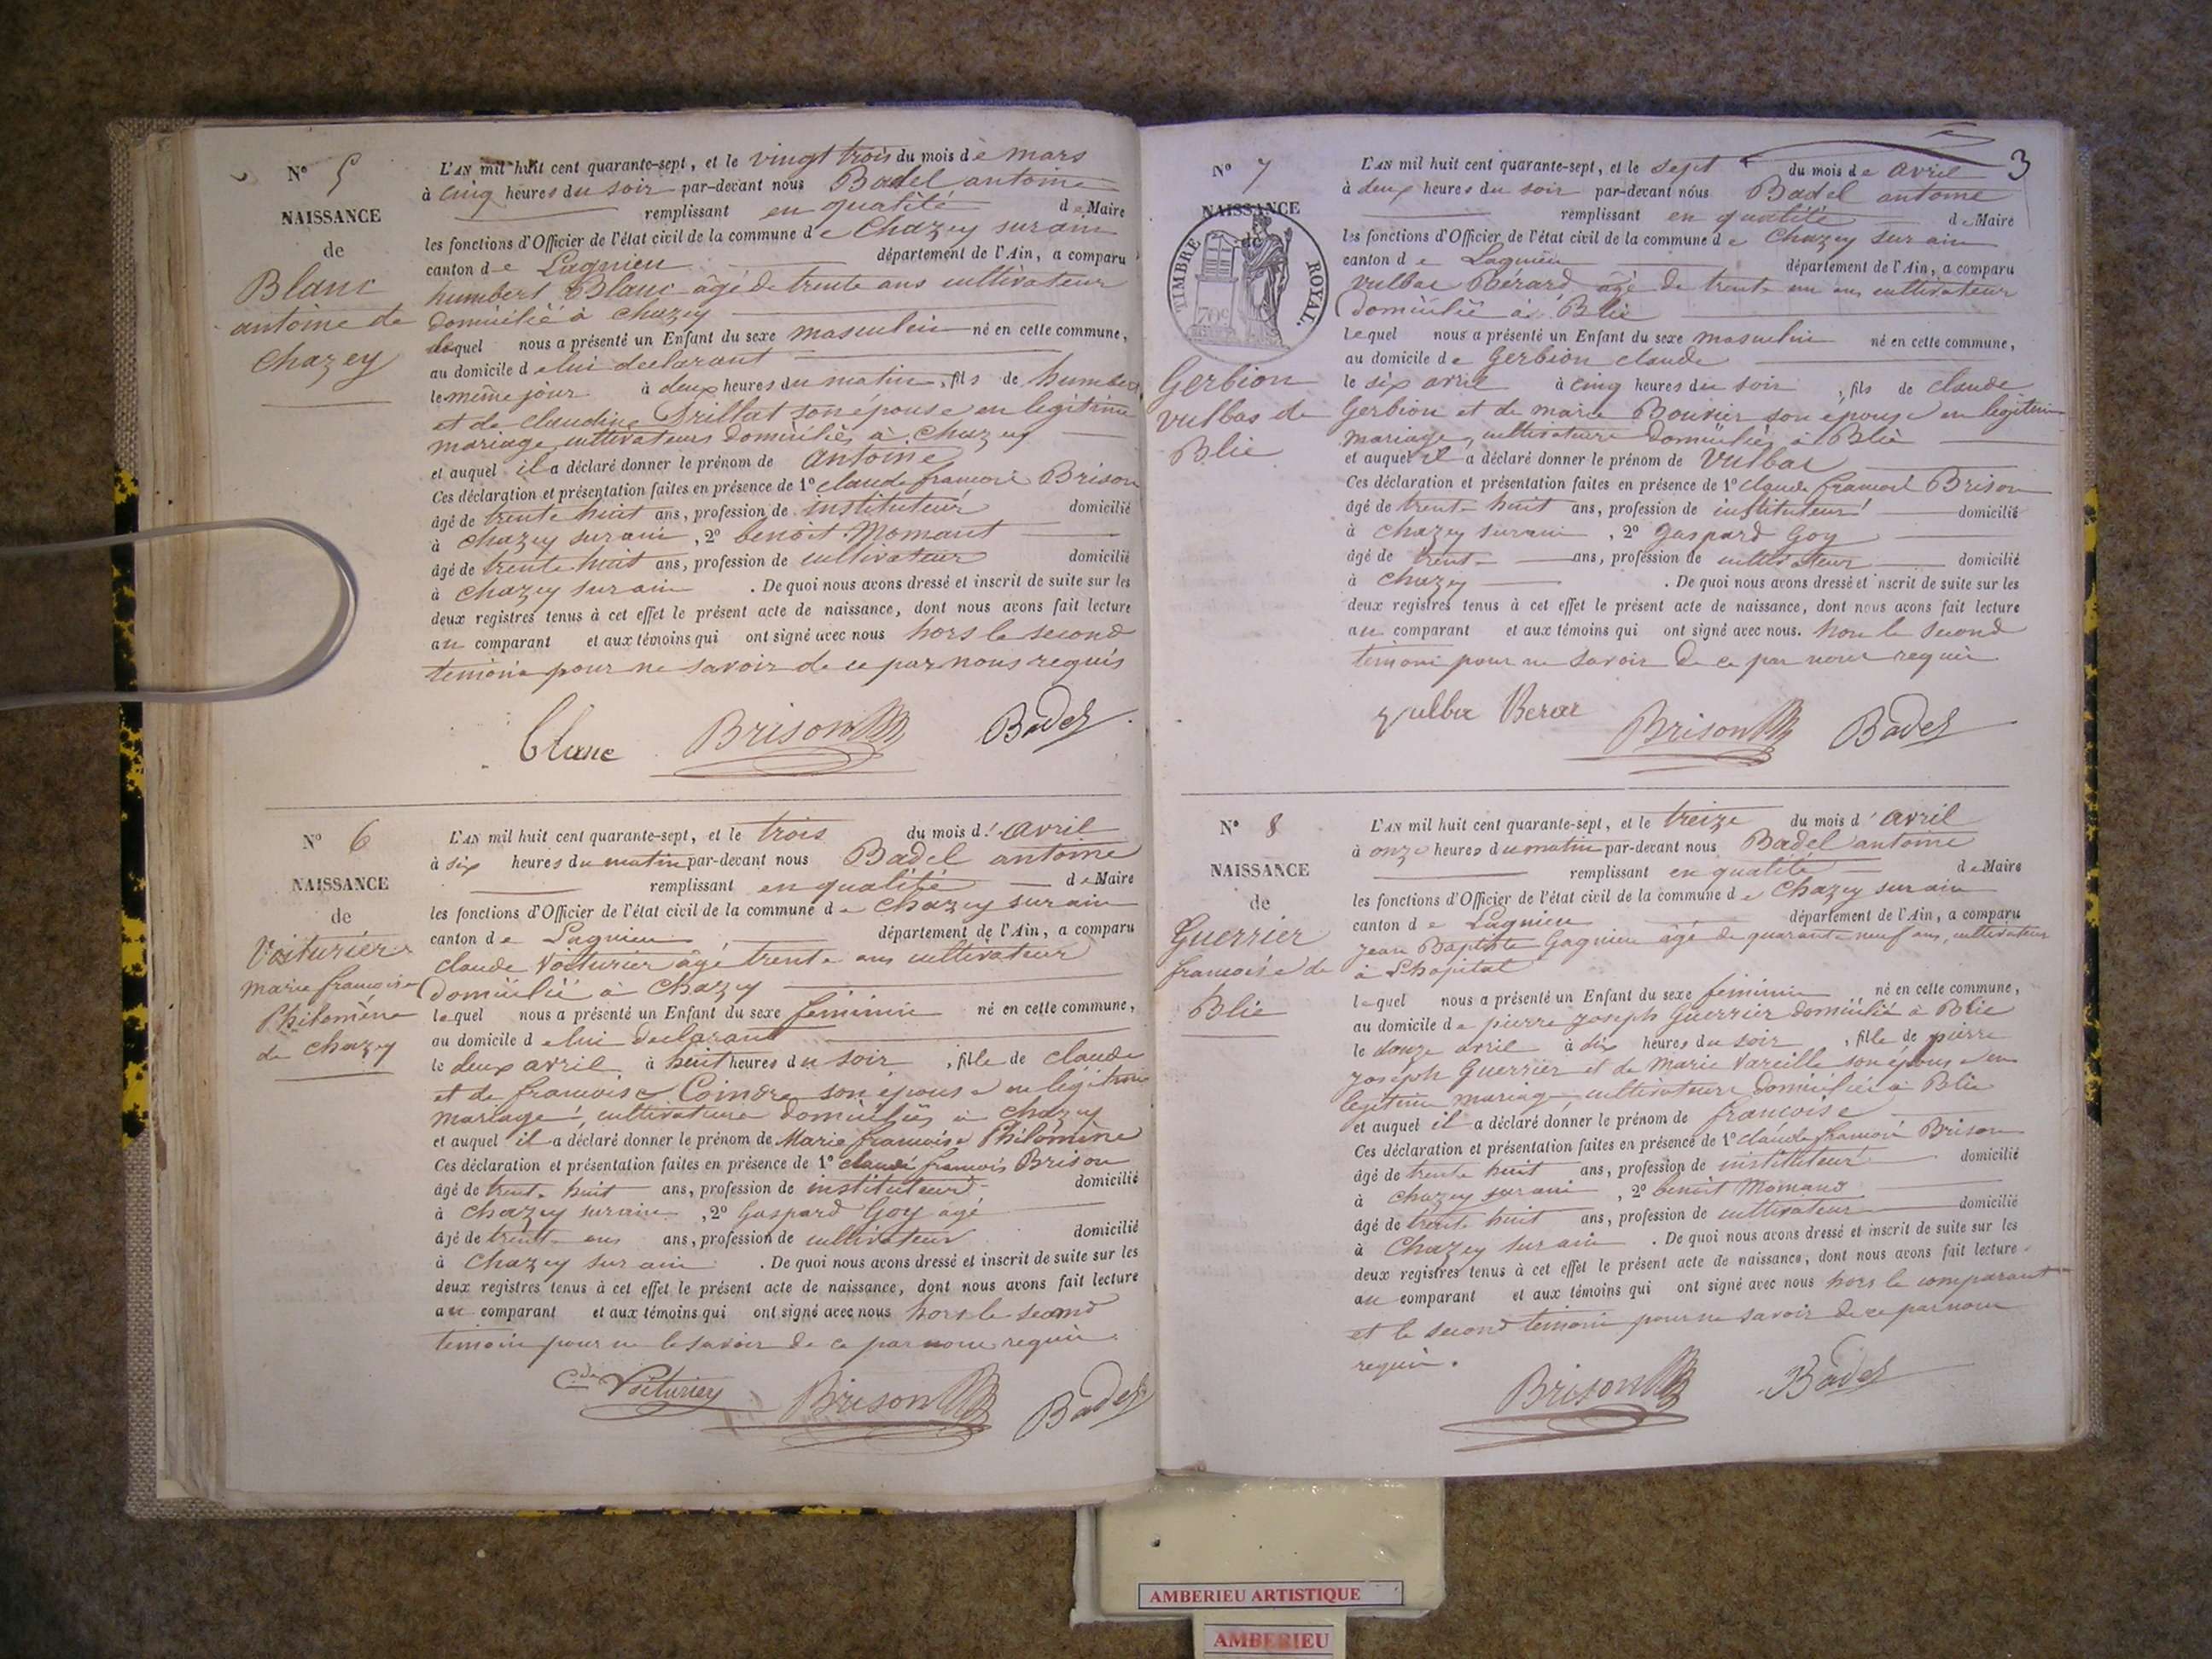 N° 5
NAISSANCE
de
Blanc
antoine de
Chazey
L'AN mil huit cent quarante-sept, et le vingt trois du mois de mars
à cinq heures du soir par-devant nous Badel antoine
remplissant en qualité de Maire
les fonctions d'Officier de l'état civil de la commune de Chazey sur ain
canton de Lagnieu département de l'Ain, a comparu
humbert Blanc âgé de trente ans cultivateur
Domicilié à Chazey
lequel nous a présenté un Enfant du sexe masculin né en cette commune,
au domicile de lui declarant
le même jour à deux heures du matin, fils de humbert
et de claudine Drillat son épouse en legitime
mariage cultivateurs domiciliés à Chazey
et auquel il a déclaré donner le prénom de antoine
Ces déclaration et présentation faites en présence de 1° claude francois Brison
âgé de trente huit ans, profession de instituteur domicilié
à chazey sur ain, 2° benoit Momant
âgé de trente huit ans, profession de cultivateur domicilié
à chazey sur ain. De quoi nous avons dressé et inscrit de suite sur les
deux registres tenus à cet effet le présent acte de naissance, dont nous avons fait lecture
au comparant et aux témoins qui ont signé avec nous hors le second
temoin pour ne savoir de ce par nous requis
blanc Brison Badel
N° 6
NAISSANCE
de
Voiturier
marie francoise
Philomène
de chazey
L'AN mil huit cent quarante-sept, et le trois du mois d'avril
à six heures du matin par-devant nous Badel antoine
remplissant en qualité de Maire
les fonctions d'Officier de l'état civil de la commune de Chazey sur ain
canton de Lagnieu département de l'Ain, a comparu
claude Voiturier âgé trente ans cultivateur
Domicilié à Chazey
lequel nous a présenté un Enfant du sexe féminin né en cette commune,
au domicile de lui declarant
le deux avril à huit heures du soir, fille de claude
et de francoise Coindre son épouse en légitime
mariage, cultivateurs domiciliés à chazey
et auquel il a déclaré donner le prénom de Marie francoise Philomène
Ces déclaration et présentation faites en présence de 1° claude francois Brison
âgé de trente huit ans, profession de instituteur domicilié
à chazey sur ain, 2° Gaspard Goy agé
âgé de trente ans ans, profession de cultivateur domicilié
à chazey sur ain. De quoi nous avons dressé et inscrit de suite sur les
deux registres tenus à cet effet le présent acte de naissance, dont nous avons fait lecture
au comparant et aux témoins qui ont signé avec nous hors le second
temoin pour ne le savoir de ce par nous requis.
Cde Voiturier Brison Badel
3
N° 7
NAISSANCE
de
TIMBRE ROYAL.
70c
Gerbion
vulbas de
Blie
L'AN mil huit cent quarante-sept, et le sept du mois de avril
à deux heures du soir par-devant nous Badel antoine
remplissant en qualité de Maire
les fonctions d'Officier de l'état civil de la commune de Chazey sur ain
canton de Lagnieu département de l'Ain, a comparu
vulbas Bérard âgé de trente un ans cultivateur
Domicilié à Blie
lequel nous a présenté un Enfant du sexe masculin né en cette commune,
au domicile de Gerbion claude
le six avril à cinq heures du soir, fils de claude
Gerbion et de marie Bouvier son épouse en légitime
mariage, cultivateurs domiciliés à Blie
et auquel il a déclaré donner le prénom de Vulbas
Ces déclaration et présentation faites en présence de 1° claude francois Brison
âgé de trente huit ans, profession de instituteur domicilié
à chazey sur ain, 2° Gaspard Goy
âgé de trente ans, profession de cultivateur domicilié
à chazey. De quoi nous avons dressé et inscrit de suite sur les
deux registres tenus à cet effet le présent acte de naissance, dont nous avons fait lecture
au comparant et aux témoins qui ont signé avec nous. hors le second
temoin pour ne savoir de ce par nous requis
Brison Badel
N° 8
NAISSANCE
de
Guerrier
francoise de
Blie
L'AN mil huit cent quarante-sept, et le treize du mois d'avril
à onze heures du matin par-devant nous Badel antoine
remplissant en qualité de Maire
les fonctions d'Officier de l'état civil de la commune de Chazey sur ain
canton de Lagnieu département de l'Ain, a comparu
jean Baptiste Gagnieu âgé de quarante neuf ans, cultivateur
à Lhopital
lequel nous a présenté un Enfant du sexe féminin né en cette commune,
au domicile de pierre joseph Guerrier domicilié à Blie
le douze avril à dix heures du soir, fille de pierre
joseph Guerrier et de Marie Vareille son épouse en
legitime mariage, cultivateurs domiciliés à Blie
et auquel il a déclaré donner le prénom de francoise
Ces déclaration et présentation faites en présence de 1° claude francois Brison
âgé de trente huit ans, profession de instituteur domicilié
à chazey sur ain, 2° benoit Momand
âgé de trente huit ans, profession de cultivateur domicilié
à Chazey sur ain. De quoi nous avons dressé et inscrit de suite sur les
deux registres tenus à cet effet le présent acte de naissance, dont nous avons fait lecture
au comparant et aux témoins qui ont signé avec nous hors le comparant
et le second temoin pour ne savoir de ce par nous
requis.
Brison Badel
AMBERIEU ARTISTIQUE
AMBERIEU